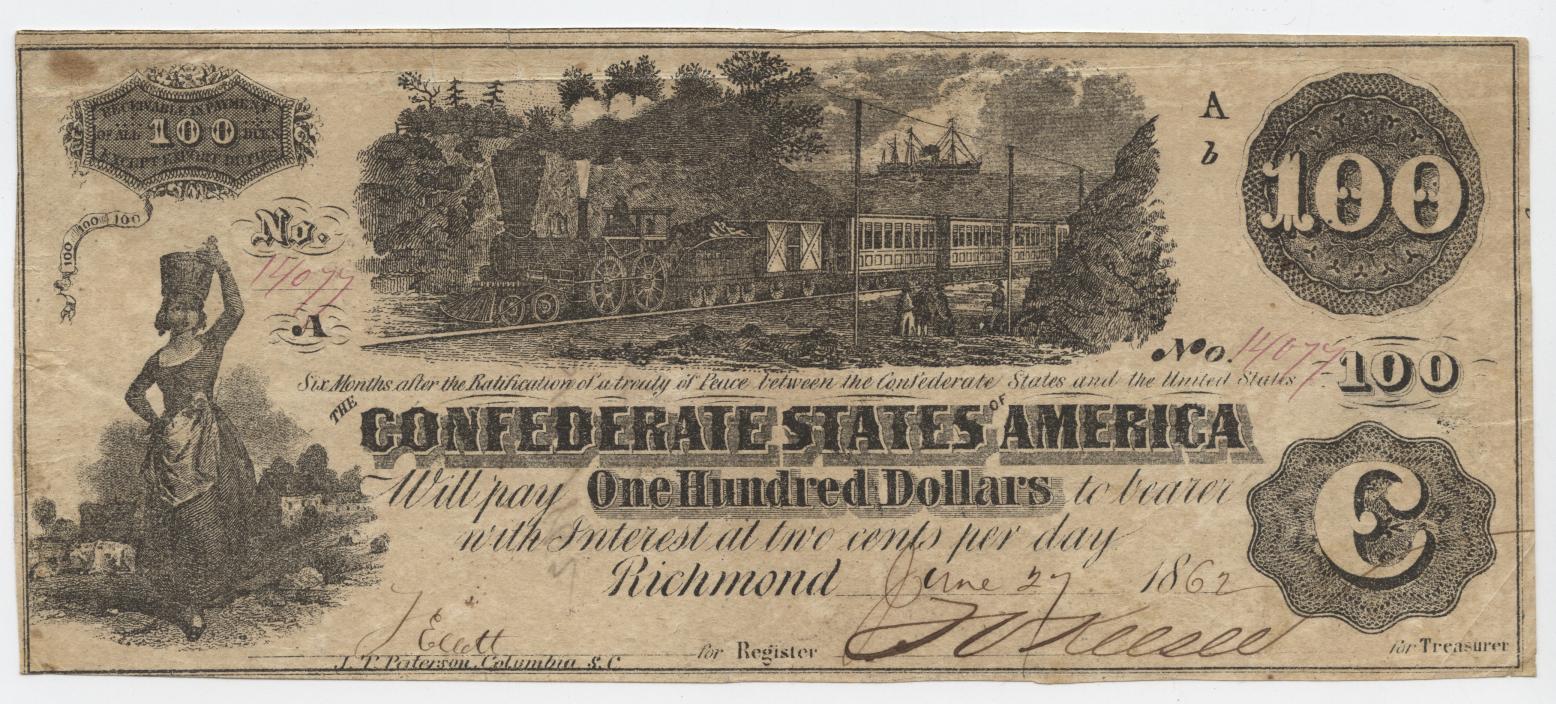 RECEIVABLE IN PAYMENT
OF ALL 100 DUES
EXCEPT EXPORT DUTIES
100 100 100
No.
14077
A
A
b
100
No. 14077
100
Six Months after the Ratification of a treaty of Peace between the Confederate States and the United States
THE CONFEDERATE STATES OF AMERICA
Will pay One Hundred Dollars to bearer
with Interest at two cents per day
Richmond June 27 1862
C
for Register
for Treasurer
J. T. Paterson, Columbia, S.C